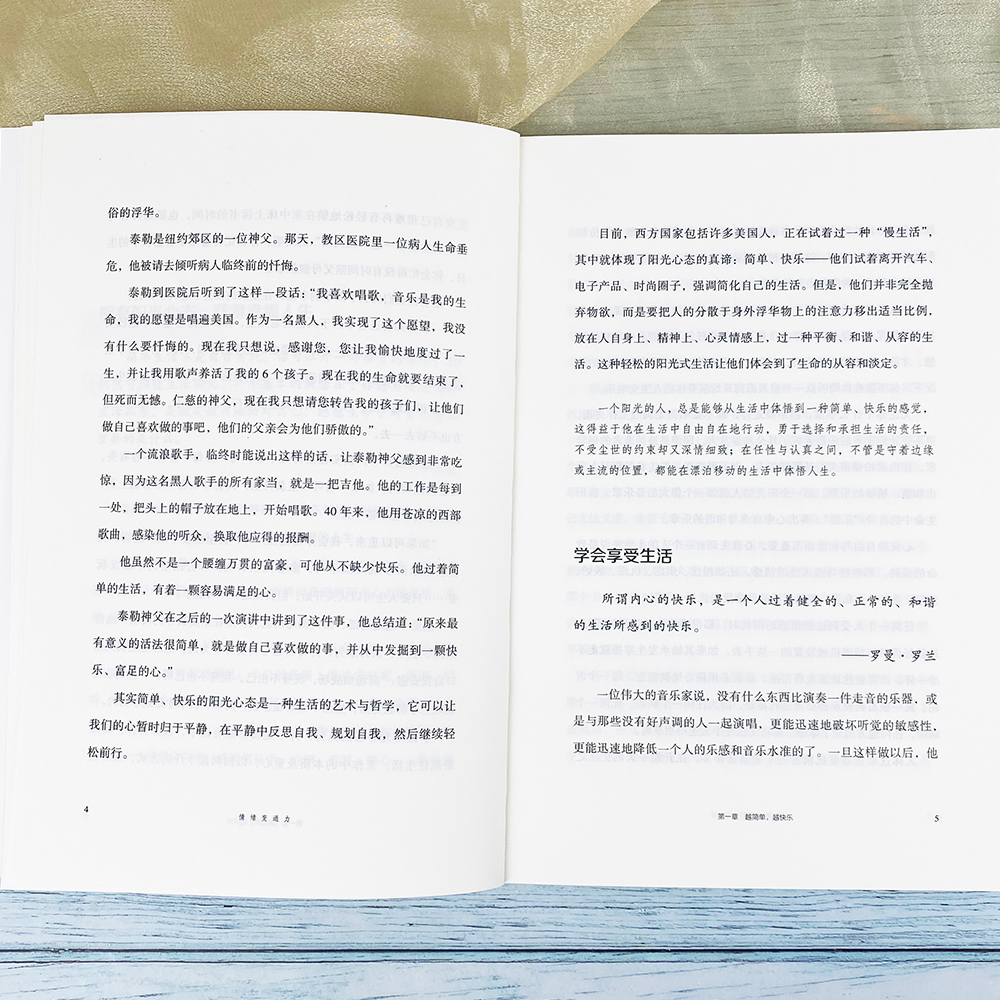 俗的浮华。
泰勒是纽约郊区的一位神父。那天，教区医院里一位病人生命垂
危，他被请去倾听病人临终前的忏悔。
泰勒到医院后听到了这样一段话：“我喜欢唱歌，音乐是我的生
命，我的愿望是唱遍美国。作为一名黑人，我实现了这个愿望，我没
有什么要忏悔的。现在我只想说，感谢您，您让我愉快地度过了一
生，并让我用歌声养活了我的6个孩子。现在我的生命就要结束了，
但死而无憾。仁慈的神父，现在我只想请您转告我的孩子们，让他们
做自己喜欢做的事吧，他们的父亲会为他们骄傲的。”
一个流浪歌手，临终时能说出这样的话，让泰勒神父感到非常吃
惊，因为这名黑人歌手的所有家当，就是一把吉他。他的工作是每到
一处，把头上的帽子放在地上，开始唱歌。40年来，他用苍凉的西部
歌曲，感染他的听众，换取他应得的报酬。
他虽然不是一个腰缠万贯的富豪，可他从不缺少快乐。他过着简
单的生活，有着一颗容易满足的心。
泰勒神父在之后的一次演讲中讲到了这件事，他总结道：“原来最
有意义的活法很简单，就是做自己喜欢做的事，并从中发掘到一颗快
乐、富足的心。”
其实简单、快乐的阳光心态是一种生活的艺术与哲学，它可以让
我们的心暂时归于平静，在平静中反思自我、规划自我，然后继续轻
松前行。
4
情绪变通力
目前，西方国家包括许多美国人，正在试着过一种“慢生活”，
其中就体现了阳光心态的真谛：简单、快乐——他们试着离开汽车、
电子产品、时尚圈子，强调简化自己的生活。但是，他们并非完全抛
弃物欲，而是要把人的分散于身外浮华物上的注意力移出适当比例，
放在人自身上、精神上、心灵情感上，过一种平衡、和谐、从容的生
活。这种轻松的阳光式生活让他们体会到了生命的从容和淡定。
一个阳光的人，总是能够从生活中体悟到一种简单、快乐的感觉，
这得益于他在生活中自由自在地行动，勇于选择和承担生活的责任，
不受尘世的约束却又深情细致；在任性与认真之间，不管是守着边缘
或主流的位置，都能在漂泊移动的生活中体悟人生。
学会享受生活
所谓内心的快乐，是一个人过着健全的、正常的、和谐
的生活所感到的快乐。
——罗曼·罗兰
一位伟大的音乐家说，没有什么东西比演奏一件走音的乐器，或
是与那些没有好声调的人一起演唱，更能迅速地破坏听觉的敏感性，
更能迅速地降低一个人的乐感和音乐水准的了。一旦这样做以后，他
第一章 越简单，越快乐
5